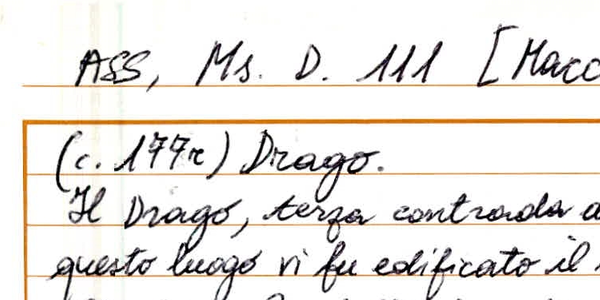 ASS, Ms. D. 111 [Macc
(c. 177r) Drago.
Il Drago, terza contrada d
questo luogo vi fu edificato il